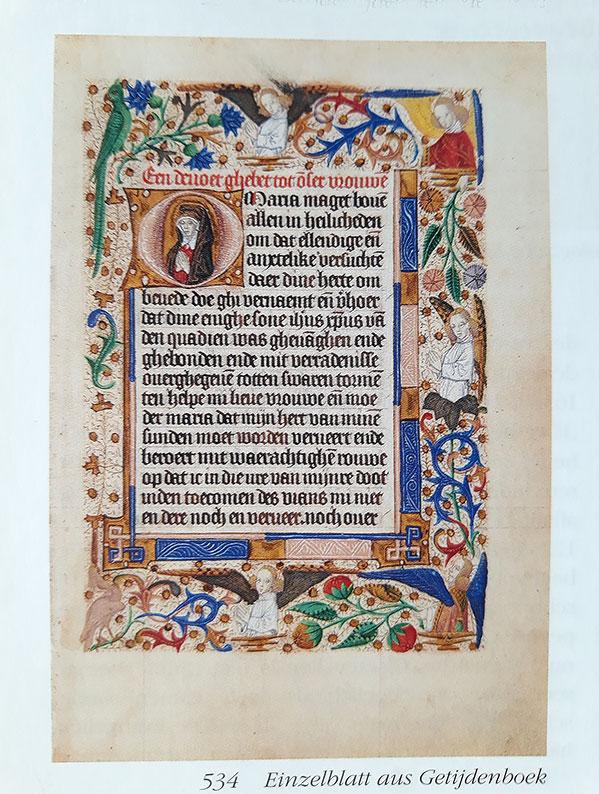 Een devoet ghebet tot ōser vrouwē
O Maria maget bouē
allen in heilicheden
om dat ellendige eñ
anxtelike versuchtē
daer dine herte om
beuede doe ghi vernaemt eñ v̄hoer
dat dine enighe sone ihūs xp̄us vā
den quadien was gheuāghen ende
ghebonden ende mit verradenisse
ouerghegeuē totten swaren tormē
ten helpe mi lieue vrouwe eñ moe
der maria dat mijn hert van minē
sunden moet worden verueert ende
beroert mit waerachtighē rouwe
op dat ic in die ure van mijnre doot
inden toecomen des vians mi niet
en dere noch en verueer. noch ouer
534 Einzelblatt aus Getijdenboek